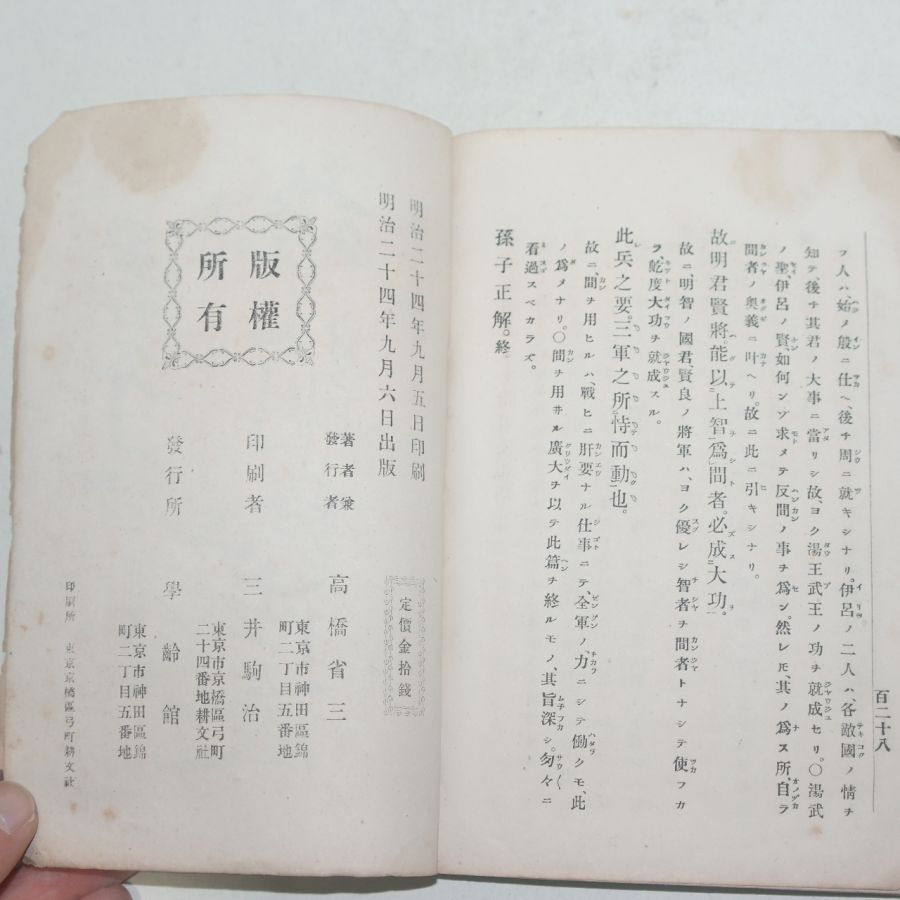 百二十八
フ人ハ、始メ殷ニ仕ヘ、後チ周ニ就キシナリ。伊呂ノ二人ハ、各敵國ノ情チ
知テ、後チ其君ノ大事ニ當リシ故、ヨク湯王武王ノ功チ就成セリ。〇湯武
ノ聖、伊呂ノ賢、如何ンゾ求メテ反間ノ事チ爲ン。然レモ、其ノ爲ス所、自ラ
間者ノ奥義ニ叶ヘリ。故ニ此ニ引キシナリ。
故明君賢將能以上智爲間者。必成大功。
故ニ、明智ノ國君、賢良ノ將軍ハ、ヨク優レシ智者チ間者トナシテ使フカ
ラ、屹度大功チ就成スル。
此兵之要。三軍之所恃而動也。
故ニ、間チ用ヒルハ、戰ヒニ肝要ナル仕事ニテ、全軍ノ、力ニシテ働クモ、此
ノ爲メナリ。〇間チ用ヰル廣大チ以テ此篇チ終ルモノ、其旨深シ。匆々ニ
看過スベカラズ。
孫子正解。終
明治二十四年九月五日印刷
明治二十四年九月六日出版
定價金拾錢
版權所有
著者兼發行者 高橋省三
東京市神田區錦町二丁目五番地
印刷者 三井駒治
東京市京橋區弓町二十四番地耕文社
發行所 學齡館
東京市神田區錦町二丁目五番地
印刷所 東京京橋區弓町耕文社